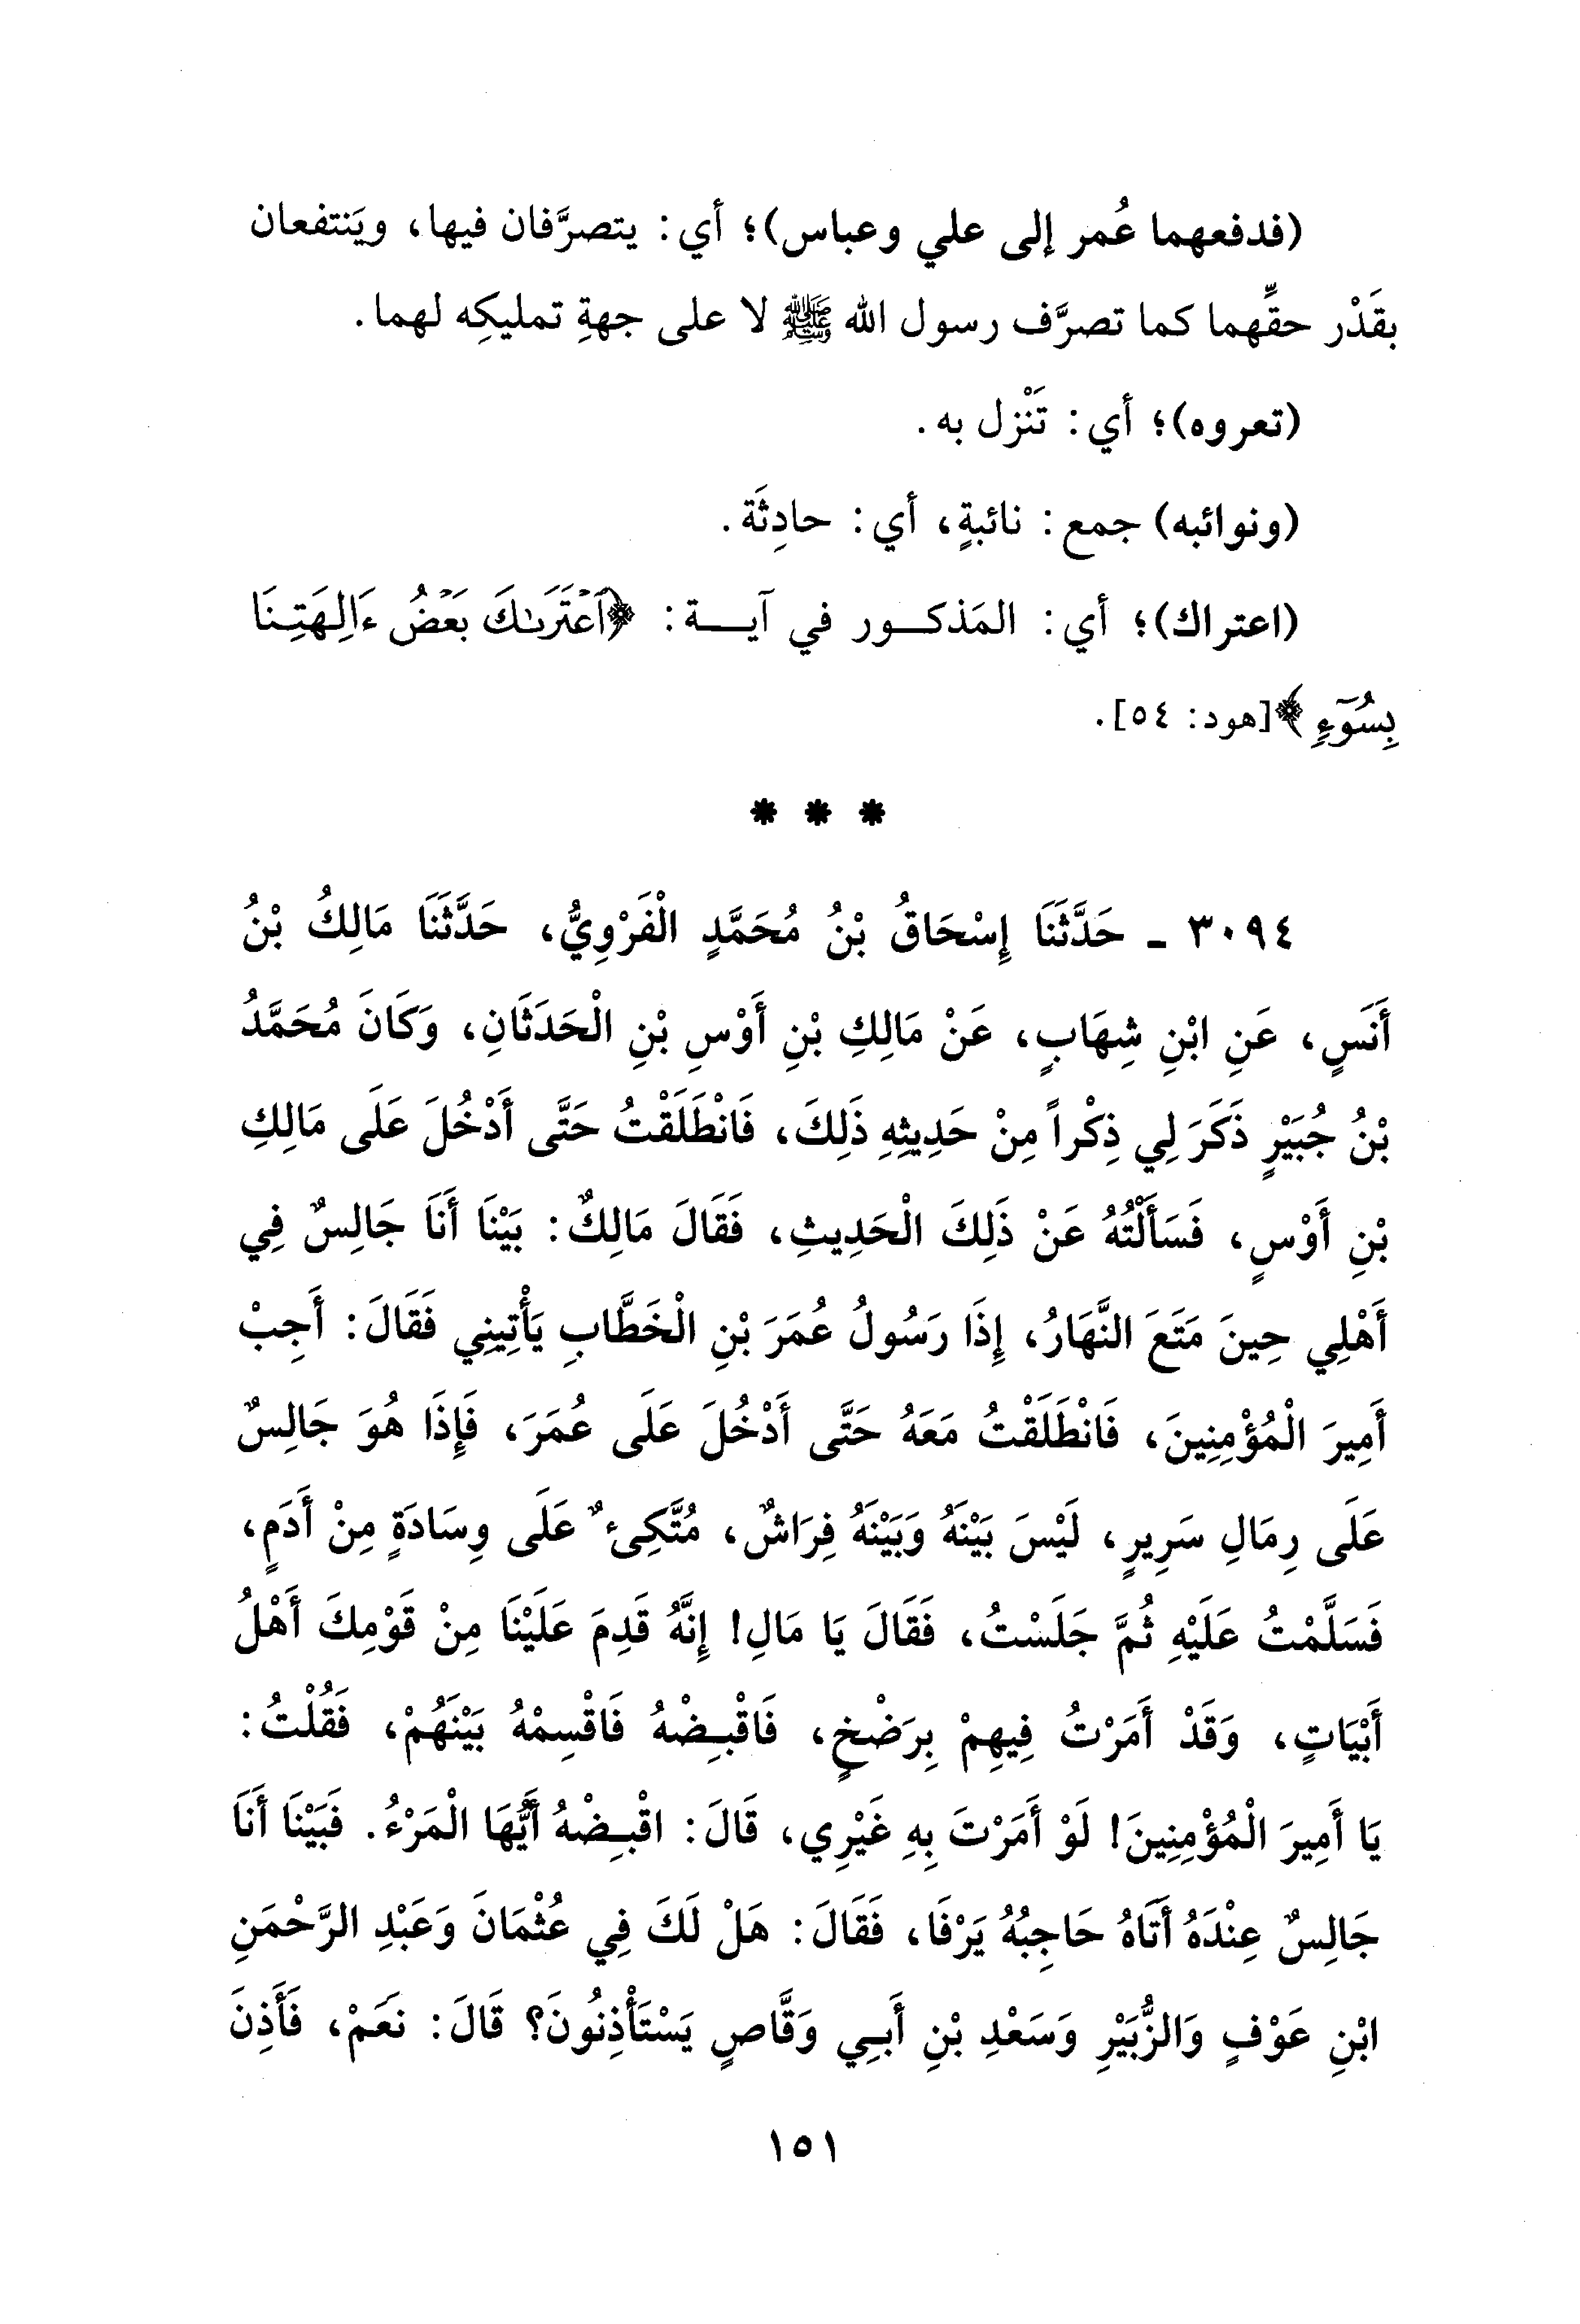 (فدفعهما عُمر إلى علي وعباس)؛ أي: يتصرَّفان فيها، ويَنتفعان
بقَدْر حقِّهما كما تصرَّف رسول الله ﷺ لا على جهةِ تمليكِه لهما.
(تعروه)؛ أي: تَنْزل به.
(ونوائبه) جمع: نائبةٍ، أي: حادِثَة.
(اعتراك)؛ أي: المَذكور في آية: ﴿ٱعۡتَرَىٰكَ بَعۡضُ ءَالِهَتِنَا
بِسُوٓءٍ﴾[هود: ٥٤].
* * *
٣٠٩٤ ـ حَدَّثَنَا إِسْحَاقُ بْنُ مُحَمَّدٍ الْفَرْوِيُّ، حَدَّثَنَا مَالِكُ بْنُ
أَنَسٍ، عَنِ ابْنِ شِهَابٍ، عَنْ مَالِكِ بْنِ أَوْسِ بْنِ الْحَدَثَانِ، وَكَانَ مُحَمَّدُ
بْنُ جُبَيْرٍ ذَكَرَ لِي ذِكْراً مِنْ حَدِيثِهِ ذَلِكَ، فَانْطَلَقْتُ حَتَّى أَدْخُلَ عَلَى مَالِكِ
بْنِ أَوْسٍ، فَسَأَلْتُهُ عَنْ ذَلِكَ الْحَدِيثِ، فَقَالَ مَالِكٌ: بَيْنَا أَنَا جَالِسٌ فِي
أَهْلِي حِينَ مَتَعَ النَّهَارُ، إِذَا رَسُولُ عُمَرَ بْنِ الْخَطَّابِ يَأْتِينِي فَقَالَ: أَجِبْ
أَمِيرَ الْمُؤْمِنِينَ، فَانْطَلَقْتُ مَعَهُ حَتَّى أَدْخُلَ عَلَى عُمَرَ، فَإِذَا هُوَ جَالِسٌ
عَلَى رِمَالِ سَرِيرٍ، لَيْسَ بَيْنَهُ وَبَيْنَهُ فِرَاشٌ، مُتَّكِىءٌ عَلَى وِسَادَةٍ مِنْ أَدَمٍ،
فَسَلَّمْتُ عَلَيْهِ ثُمَّ جَلَسْتُ، فَقَالَ يَا مَالِ! إِنَّهُ قَدِمَ عَلَيْنَا مِنْ قَوْمِكَ أَهْلُ
أَبْيَاتٍ، وَقَدْ أَمَرْتُ فِيهِمْ بِرَضْخٍ، فَاقْبِضْهُ فَاقْسِمْهُ بَيْنَهُمْ، فَقُلْتُ:
يَا أَمِيرَ الْمُؤْمِنِينَ! لَوْ أَمَرْتَ بِهِ غَيْرِي، قَالَ: اقْبِضْهُ أَيُّهَا الْمَرْءُ. فَبَيْنَا أَنَا
جَالِسٌ عِنْدَهُ أَتَاهُ حَاجِبُهُ يَرْفَا، فَقَالَ: هَلْ لَكَ فِي عُثْمَانَ وَعَبْدِ الرَّحْمَنِ
ابْنِ عَوْفٍ وَالزُّبَيْرِ وَسَعْدِ بْنِ أَبِي وَقَّاصٍ يَسْتَأْذِنُونَ؟ قَالَ: نَعَمْ، فَأَذِنَ
١٥١